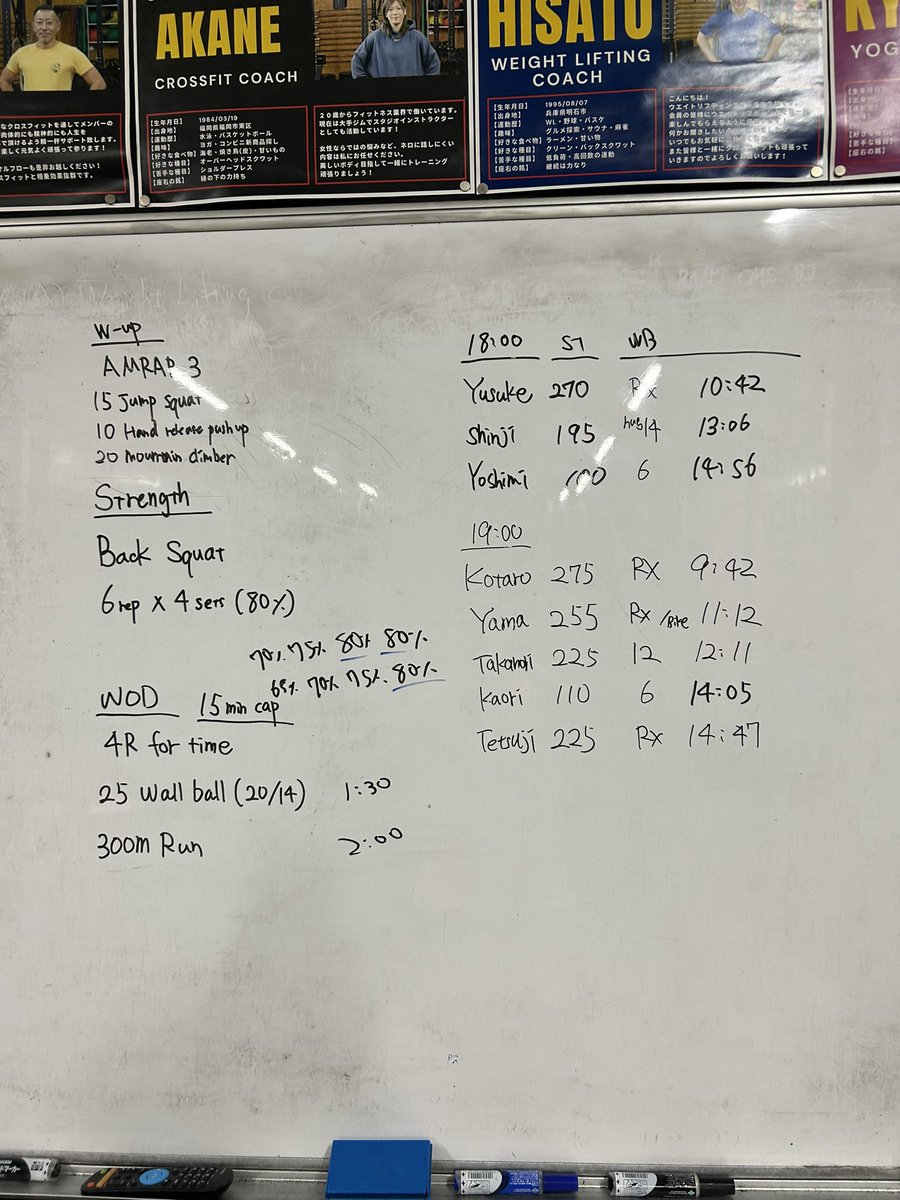 AKANE
CROSSFIT COACH
【生年月日】 1984/03/19
【出身地】 福岡県福岡市東区
【運動歴】 水泳・バスケットボール
【趣味】 ヨガ・コンビニ新商品探し
【好きな食べ物】 海老・焼き鳥(皮)・甘いもの
【得意な種目】 オーバーヘッドスクワット
【苦手な種目】 ショルダープレス
【座右の銘】 縁の下の力持ち
２０歳からフィットネス業界で働いています。
現在は大手ジムでスタジオインストラクター
としても活動しています！
女性ならではの悩みなど、ネロに話しにくい
内容は私にお任せください。
美しいボディ目指して一緒にトレーニング
頑張りましょう！
HISATO
WEIGHT LIFTING
COACH
【生年月日】 1995/08/07
【出身地】 兵庫県明石市
【運動歴】 WL・野球・バスケ
【趣味】 グルメ探索・サウナ・麻雀
【好きな食べ物】 ラーメン・甘い物
【得意な種目】 クリーン・バックスクワット
【苦手な種目】 低負荷・高回数の運動
【座右の銘】 継続は力なり
こんにちは！
YOG
W-up
AMRAP 3
15 Jump squat
10 Hand release push up
20 mountain climber
Strength
Back Squat
6rep x 4sets (80%)
70%. 75%. 80% 80%
65% 70% 75%. 80%
WOD 15 min cap
4R for time
25 Wall ball (20/14) 1:30
300m Run 2:00
18:00 ST WB
Yusuke 270 Rx 10:42
Shinji 195 14 13:06
Yoshimi 6 14:56
19:00
Kotaro 275 Rx 9:42
Yama 255 Rx /Bike 11:12
Takanori 225 12 12:11
Kaori 110 6 14:05
Tetsuji 225 Rx 14:47